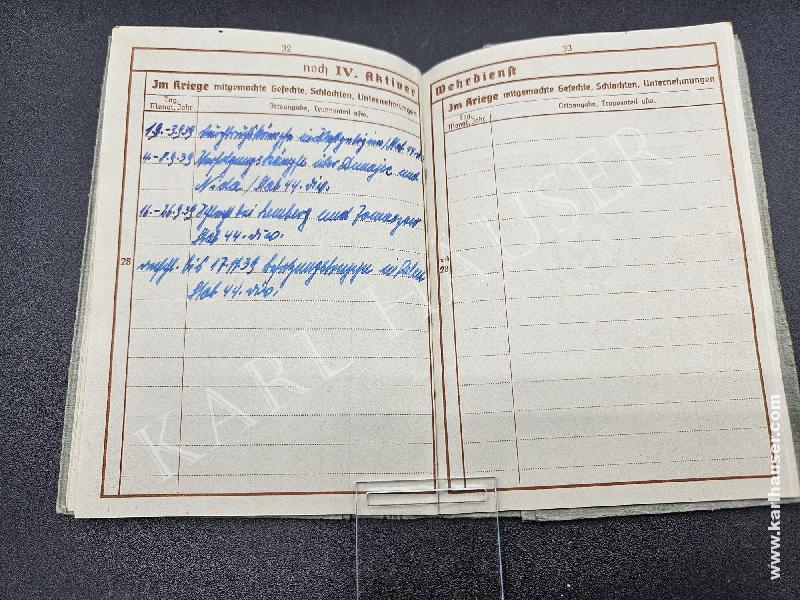 32
noch IV. Aktiver
Im Kriege mitgemachte Gefechte, Schlachten, Unternehmungen
Tag, Monat, Jahr
Ortsangabe, Truppenteil usw.
1.9.-3.9.39 in Westgalizien / Stab 44. Div.
4.-8.9.39 Verfolgungskämpfe über Dunajec und
Nida / Stab 44. Div.
16.-26.9.39 Schlacht bei Lemberg und
Stab 44. Div.
28 anschl. bis 17.11.39 Besatzungstruppe in Polen
Stab 44. Div.
33
Wehrdienst
Im Kriege mitgemachte Gefechte, Schlachten, Unternehmungen
Tag, Monat, Jahr
Ortsangabe, Truppenteil usw.
28
KARL HAUSER
www.karlhauser.com